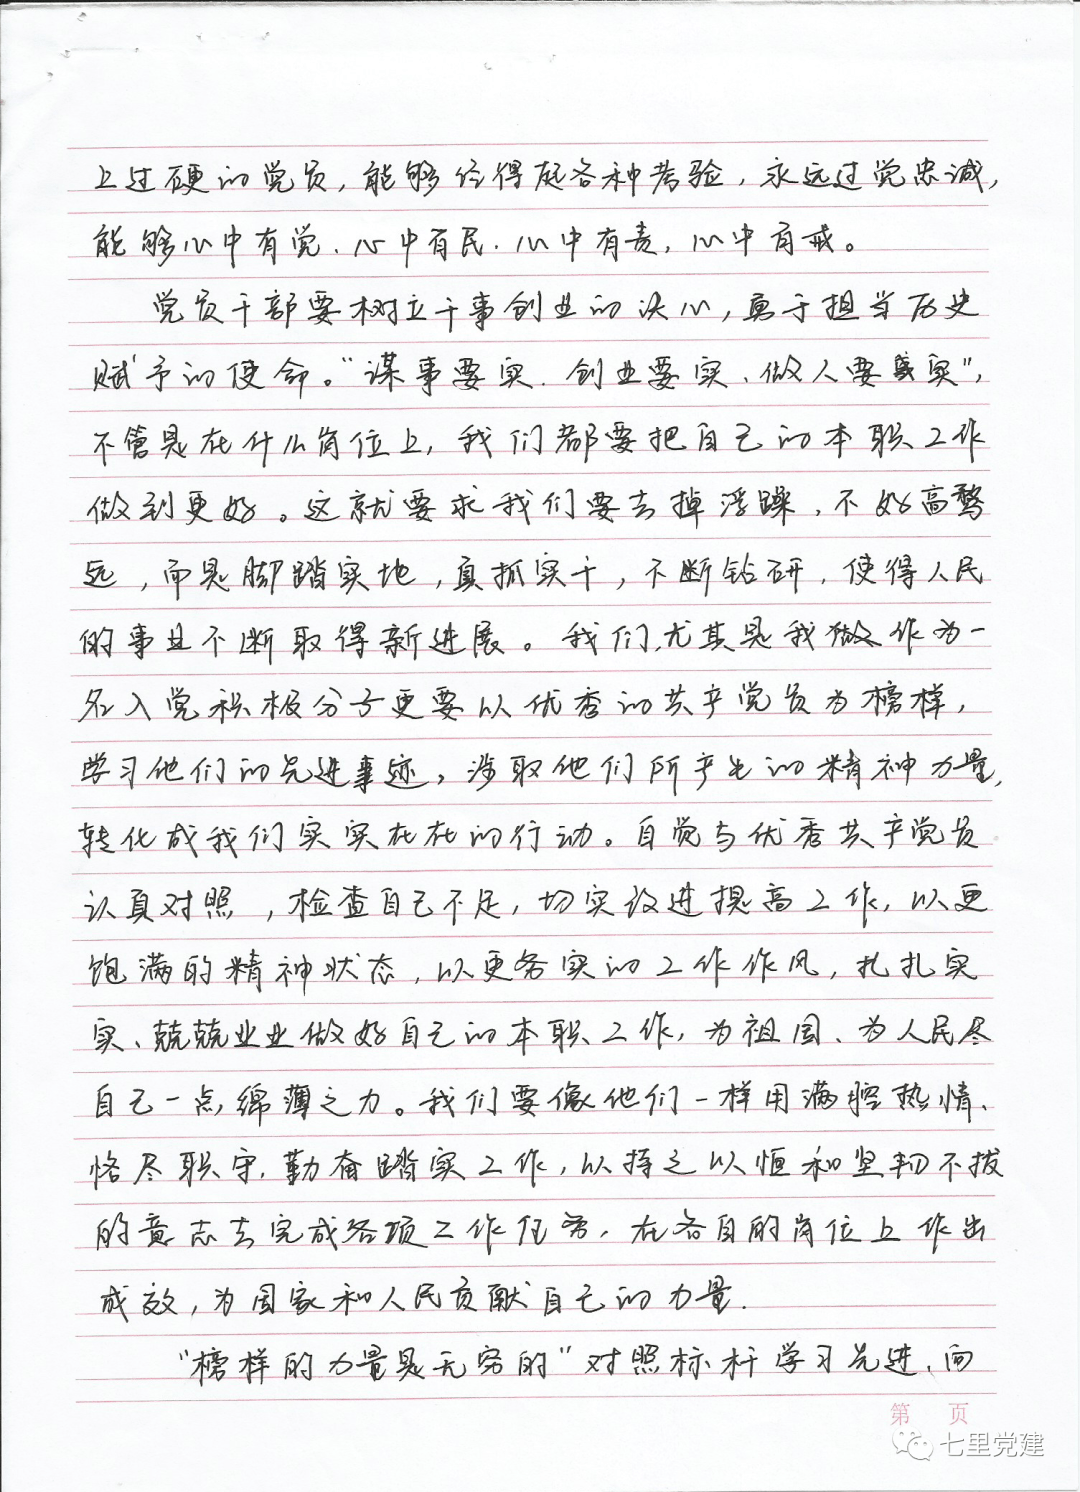 上过硬的党员，能够经得起各种考验，永远过党忠诚，
能够心中有党、心中有民、心中有责，心中有戒。
党员干部要树立干事创业的决心，勇于担当历史
赋予的使命。“谋事要实、创业要实、做人要实”，
不管是在什么岗位上，我们都要把自己的本职工作
做到更好。这就要求我们要去掉浮躁，不好高骛
远，而是脚踏实地，真抓实干，不断钻研，使得人民
的事业不断取得新进展。我们，尤其是我做作为一
名入党积极分子更要以优秀的共产党员为榜样，
学习他们的先进事迹，涉取他们所产生的精神力量，
转化成我们实实在在的行动。自觉与优秀共产党员
认真对照，检查自己不足，切实改进提高工作，以更
饱满的精神状态，以更务实的工作作风，扎扎实
实、兢兢业业做好自己的本职工作，为祖国、为人民尽
自己一点绵薄之力。我们要像他们一样用满腔热情、
恪尽职守，勤奋踏实工作，以持之以恒和坚韧不拔
的意志去完成各项工作任务，在各自的岗位上作出
成效，为国家和人民贡献自己的力量.
“榜样的力量是无穷的”对照标杆学习先进、向
第 页
七里党建